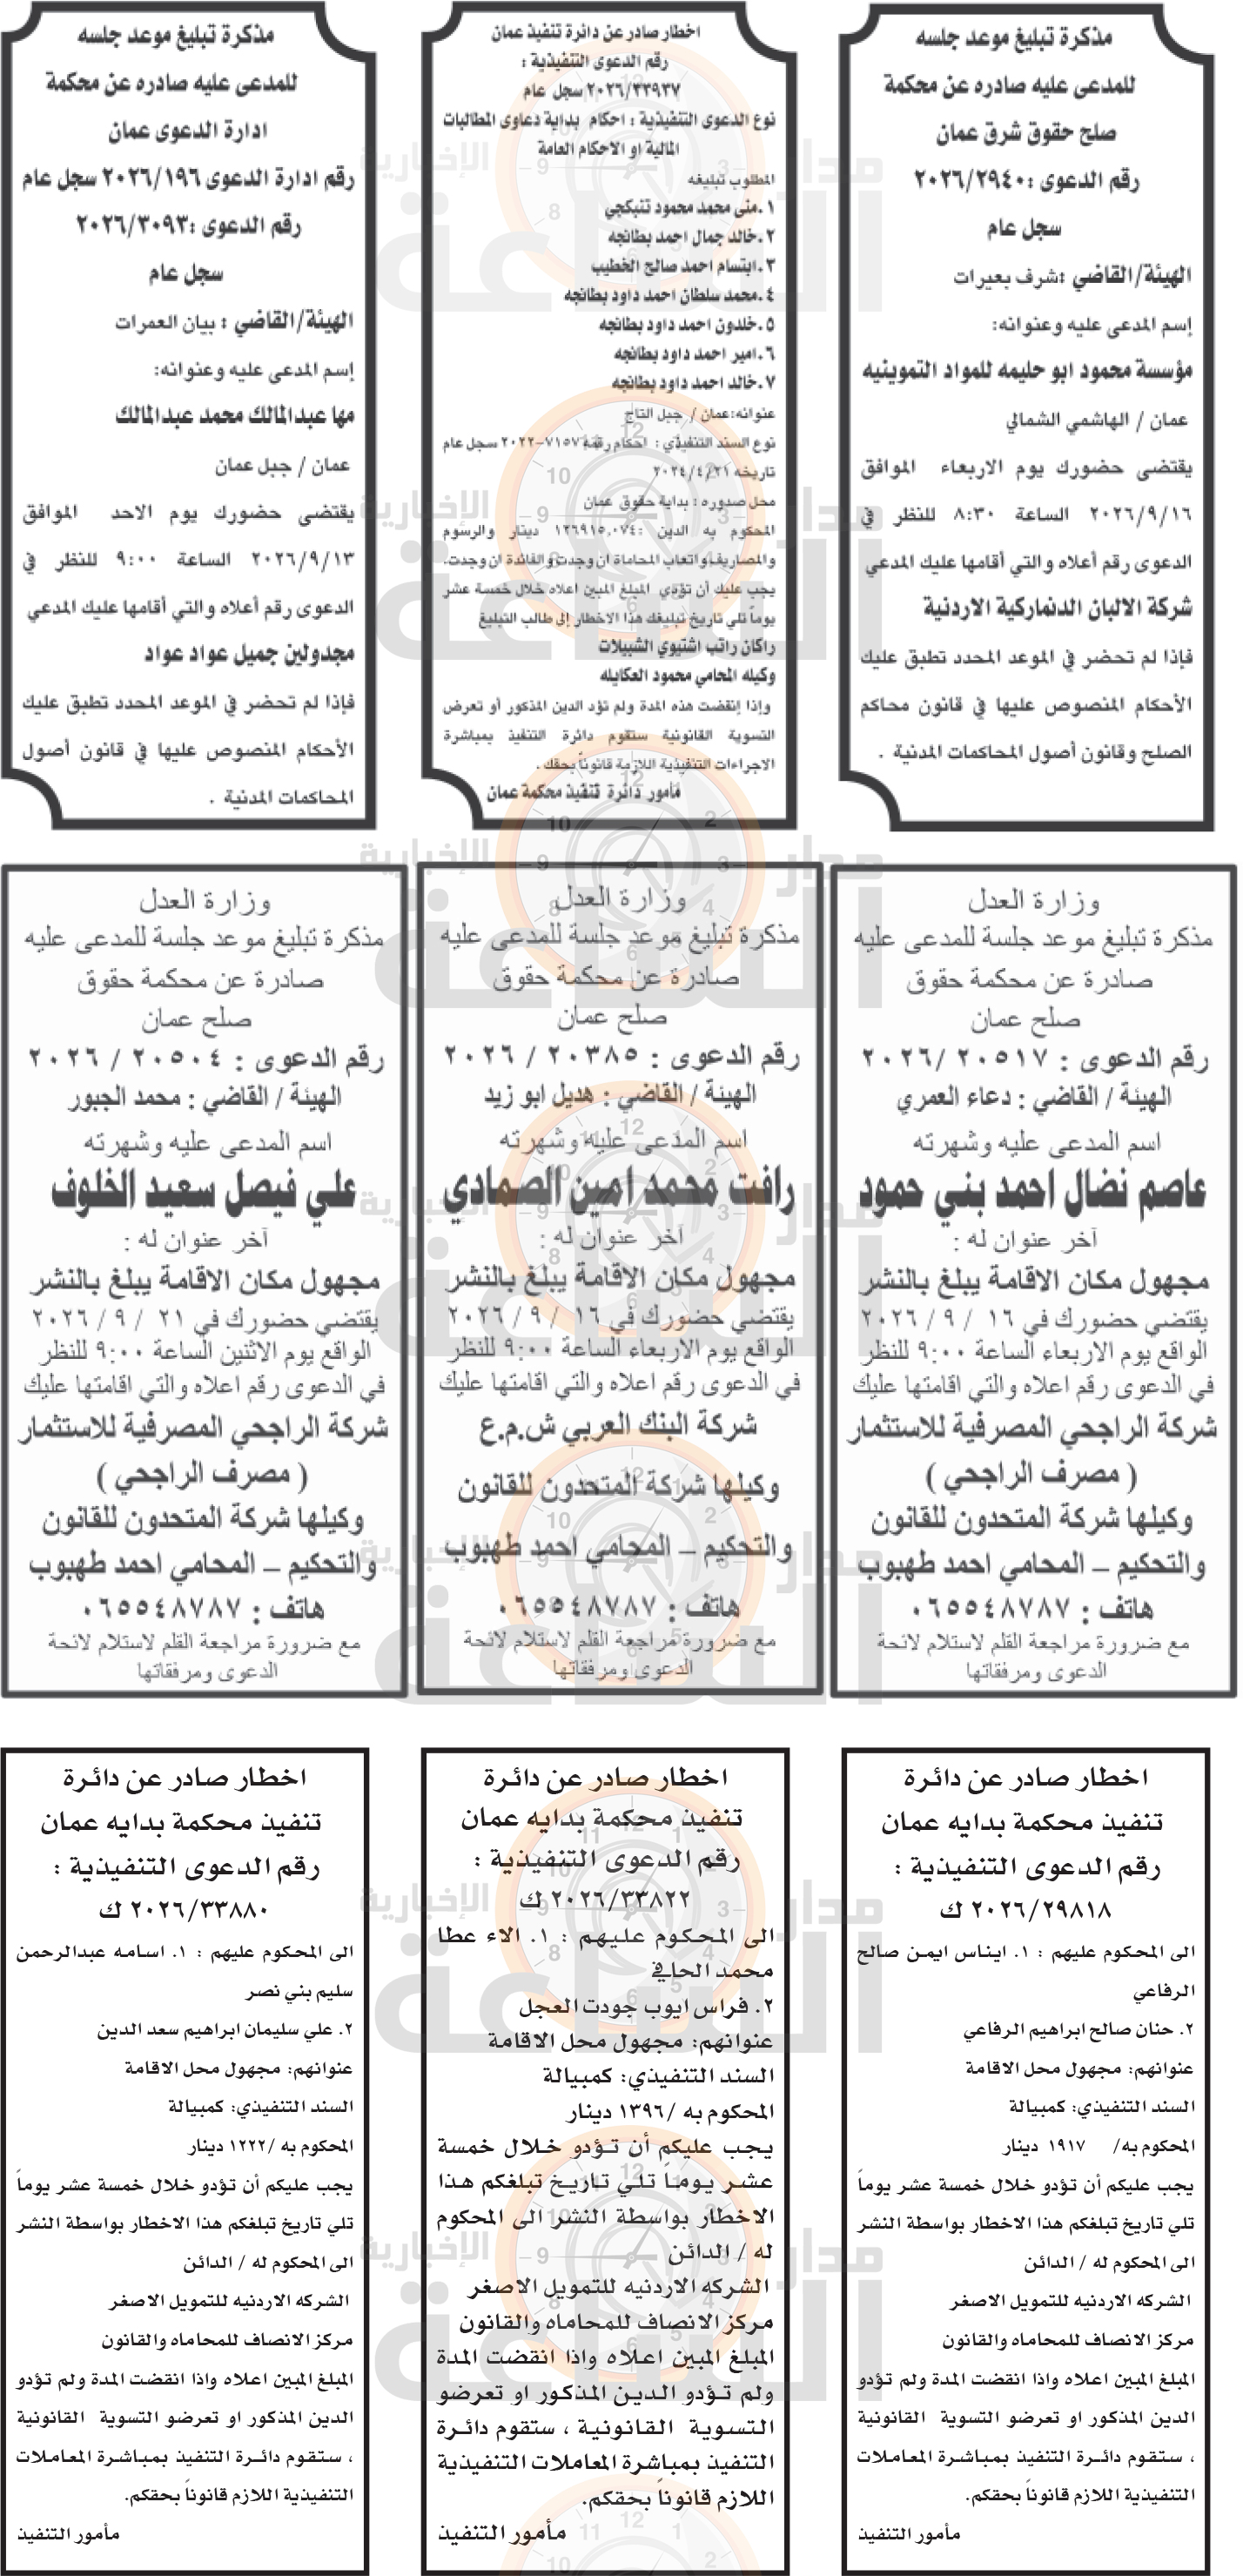 مذكرة تبليغ موعد جلسه
للمدعى عليه صادره عن محكمة
صلح حقوق شرق عمان
رقم الدعوى :٢٠٢٦/٢٩٤٠
سجل عام
الهيئة/القاضي :شرف بعيرات
إسم المدعى عليه وعنوانه:
مؤسسة محمود ابو حليمه للمواد التموينيه
عمان / الهاشمي الشمالي
يقتضى حضورك يوم الاربعاء الموافق
٢٠٢٦/٩/١٦ الساعة ٨:٣٠ للنظر في
الدعوى رقم أعلاه والتي أقامها عليك المدعي
شركة الالبان الدنماركية الاردنية
فإذا لم تحضر في الموعد المحدد تطبق عليك
الأحكام المنصوص عليها في قانون محاكم
الصلح وقانون أصول المحاكمات المدنية .
اخطار صادر عن دائرة تنفيذ عمان
رقم الدعوى التنفيذية :
٢٠٢٦/٣٣٩٣٧ سجل عام
نوع الدعوى التنفيذية : احكام بداية دعاوى المطالبات
المالية او الاحكام العامة
المطلوب تبليغه
١.منى محمد محمود تنبكجي
٢.خالد جمال احمد بطانجه
٣.ابتسام احمد صالح الخطيب
٤.محمد سلطان احمد داود بطانجه
٥.خلدون احمد داود بطانجه
٦.امير احمد داود بطانجه
٧.خالد احمد داود بطانجه
عنوانه:عمان / جبل التاج
نوع السند التنفيذي : احكام رقمه ٧١٥٧-٢٠٢٢ سجل عام
تاريخه ٢٠٢٤/٤/٢١
محل صدوره : بداية حقوق عمان
المحكوم به الدين :١٢٦٩١٥,٠٧٤ دينار والرسوم
والمصاريف واتعاب المحاماة ان وجدت والفائدة ان وجدت.
يجب عليك أن تؤدي المبلغ المبين اعلاه خلال خمسة عشر
يوماً تلي تاريخ تبليغك هذا الاخطار إلى طالب التبليغ
راكان راتب اشتيوي الشبيلات
وكيله المحامي محمود العكايله
وإذا إنقضت هذه المدة ولم تؤد الدين المذكور أو تعرض
التسوية القانونية ستقوم دائرة التنفيذ بمباشرة
الاجراءات التنفيذية اللازمة قانوناً بحقك .
مأمور دائرة تنفيذ محكمة عمان
مذكرة تبليغ موعد جلسه
للمدعى عليه صادره عن محكمة
ادارة الدعوى عمان
رقم ادارة الدعوى ٢٠٢٦/١٩٦ سجل عام
رقم الدعوى :٢٠٢٦/٣٠٩٣
سجل عام
الهيئة/القاضي : بيان العمرات
إسم المدعى عليه وعنوانه:
مها عبدالمالك محمد عبدالمالك
عمان / جبل عمان
يقتضى حضورك يوم الاحد الموافق
٢٠٢٦/٩/١٣ الساعة ٩:٠٠ للنظر في
الدعوى رقم أعلاه والتي أقامها عليك المدعي
مجدولين جميل عواد عواد
فإذا لم تحضر في الموعد المحدد تطبق عليك
الأحكام المنصوص عليها في قانون أصول
المحاكمات المدنية .
وزارة العدل
مذكرة تبليغ موعد جلسة للمدعى عليه
صادرة عن محكمة حقوق
صلح عمان
رقم الدعوى : ٢٠٥١٧ /٢٠٢٦
الهيئة / القاضي : دعاء العمري
اسم المدعى عليه وشهرته
عاصم نضال احمد بني حمود
آخر عنوان له :
مجهول مكان الاقامة يبلغ بالنشر
يقتضي حضورك في ١٦ / ٩ / ٢٠٢٦
الواقع يوم الاربعاء الساعة ٩:٠٠ للنظر
في الدعوى رقم اعلاه والتي اقامتها عليك
شركة الراجحي المصرفية للاستثمار
( مصرف الراجحي )
وكيلها شركة المتحدون للقانون
والتحكيم – المحامي احمد طهبوب
هاتف : ٠٦٥٥٤٨٧٨٧
مع ضرورة مراجعة القلم لاستلام لائحة
الدعوى ومرفقاتها
وزارة العدل
مذكرة تبليغ موعد جلسة للمدعى عليه
صادرة عن محكمة حقوق
صلح عمان
رقم الدعوى : ٢٠٣٨٥ / ٢٠٢٦
الهيئة / القاضي : هديل ابو زيد
اسم المدعى عليه وشهرته
رافت محمد امين الصمادي
آخر عنوان له :
مجهول مكان الاقامة يبلغ بالنشر
يقتضي حضورك في ١٦ / ٩ / ٢٠٢٦
الواقع يوم الاربعاء الساعة ٩:٠٠ للنظر
في الدعوى رقم اعلاه والتي اقامتها عليك
شركة البنك العربي ش.م.ع
وكيلها شركة المتحدون للقانون
والتحكيم – المحامي احمد طهبوب
هاتف : ٠٦٥٥٤٨٧٨٧
مع ضرورة مراجعة القلم لاستلام لائحة
الدعوى ومرفقاتها
وزارة العدل
مذكرة تبليغ موعد جلسة للمدعى عليه
صادرة عن محكمة حقوق
صلح عمان
رقم الدعوى : ٢٠٥٠٤ / ٢٠٢٦
الهيئة / القاضي : محمد الجبور
اسم المدعى عليه وشهرته
علي فيصل سعيد الخلوف
آخر عنوان له :
مجهول مكان الاقامة يبلغ بالنشر
يقتضي حضورك في ٢١ / ٩ / ٢٠٢٦
الواقع يوم الاثنين الساعة ٩:٠٠ للنظر
في الدعوى رقم اعلاه والتي اقامتها عليك
شركة الراجحي المصرفية للاستثمار
( مصرف الراجحي )
وكيلها شركة المتحدون للقانون
والتحكيم – المحامي احمد طهبوب
هاتف : ٠٦٥٥٤٨٧٨٧
مع ضرورة مراجعة القلم لاستلام لائحة
الدعوى ومرفقاتها
اخطار صادر عن دائرة
تنفيذ محكمة بدايه عمان
رقم الدعوى التنفيذية :
٢٠٢٦/٢٩٨١٨ ك
الى المحكوم عليهم : ١. ايناس ايمن صالح
الرفاعي
٢. حنان صالح ابراهيم الرفاعي
عنوانهم: مجهول محل الاقامة
السند التنفيذي: كمبيالة
المحكوم به/ ١٩١٧ دينار
يجب عليكم أن تؤدو خلال خمسة عشر يوماً
تلي تاريخ تبلغكم هذا الاخطار بواسطة النشر
الى المحكوم له / الدائن
الشركه الاردنيه للتمويل الاصغر
مركز الانصاف للمحاماه والقانون
المبلغ المبين اعلاه واذا انقضت المدة ولم تؤدو
الدين المذكور او تعرضو التسوية القانونية
، ستقوم دائرة التنفيذ بمباشرة المعاملات
التنفيذية اللازم قانوناً بحقكم.
مأمور التنفيذ
اخطار صادر عن دائرة
تنفيذ محكمة بدايه عمان
رقم الدعوى التنفيذية :
٢٠٢٦/٣٣٨٢٢ ك
الى المحكوم عليهم : ١. الاء عطا
محمد الحافي
٢. فراس ايوب جودت العجل
عنوانهم: مجهول محل الاقامة
السند التنفيذي: كمبيالة
المحكوم به /١٣٩٦ دينار
يجب عليكم أن تؤدو خلال خمسة
عشر يوماً تلي تاريخ تبلغكم هذا
الاخطار بواسطة النشر الى المحكوم
له / الدائن
الشركه الاردنيه للتمويل الاصغر
مركز الانصاف للمحاماه والقانون
المبلغ المبين اعلاه واذا انقضت المدة
ولم تؤدو الدين المذكور او تعرضو
التسوية القانونية ، ستقوم دائرة
التنفيذ بمباشرة المعاملات التنفيذية
اللازم قانوناً بحقكم.
مأمور التنفيذ
اخطار صادر عن دائرة
تنفيذ محكمة بدايه عمان
رقم الدعوى التنفيذية :
٢٠٢٦/٣٣٨٨٠ ك
الى المحكوم عليهم : ١. اسامه عبدالرحمن
سليم بني نصر
٢. علي سليمان ابراهيم سعد الدين
عنوانهم: مجهول محل الاقامة
السند التنفيذي: كمبيالة
المحكوم به /١٢٢٢ دينار
يجب عليكم أن تؤدو خلال خمسة عشر يوماً
تلي تاريخ تبلغكم هذا الاخطار بواسطة النشر
الى المحكوم له / الدائن
الشركه الاردنيه للتمويل الاصغر
مركز الانصاف للمحاماه والقانون
المبلغ المبين اعلاه واذا انقضت المدة ولم تؤدو
الدين المذكور او تعرضو التسوية القانونية
، ستقوم دائرة التنفيذ بمباشرة المعاملات
التنفيذية اللازم قانوناً بحقكم.
مأمور التنفيذ
مدار الساعة الإخبارية